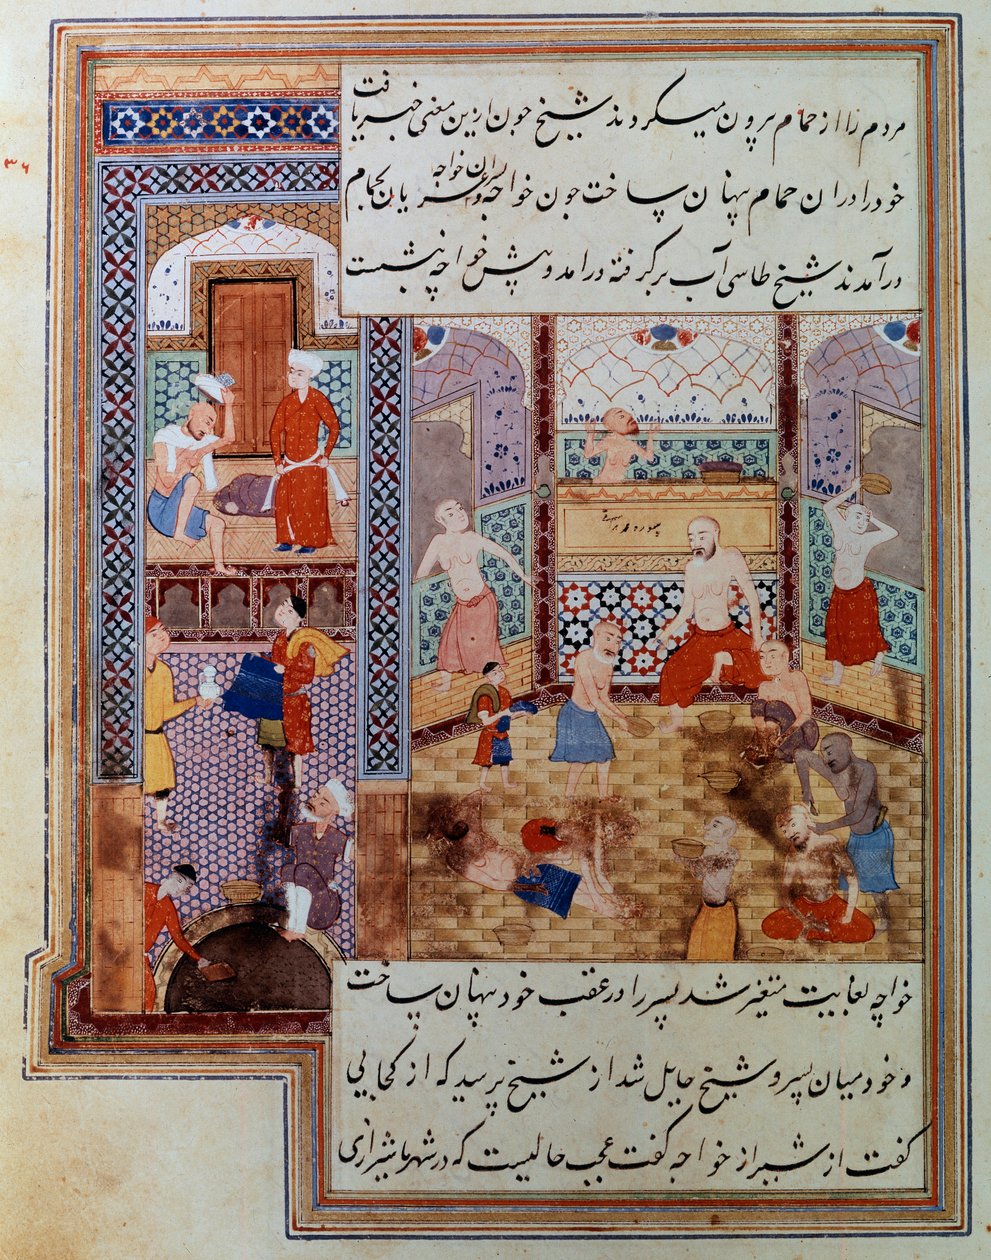 مردم را از حمام بیرون میکردند شیخ چون ازین معنی خبر یافت
خود را دران حمام پنهان ساخت چون خواجه و پسران خواجه عریان بحمام
درآمدند شیخ طاسی آب برگرفته درآمد و پیش خواجه نشست
خواجه بغایت متغیر شد پسر را در عقب خود پنهان ساخت
و خود میان پسر و شیخ حایل شد از شیخ پرسید که از کجایی
کفت از شیراز خواجه کفت عجب حالیست که در شهر ما شیرازی
۳۶